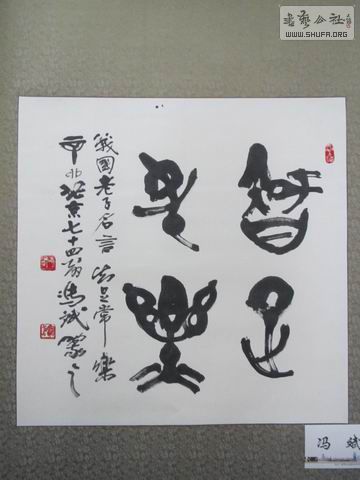 書藝公社
WWW.SHUFA.ORG
知足
常樂
戰國老子名言知足常樂
北京七十四翁馮斌篆之
冯 斌